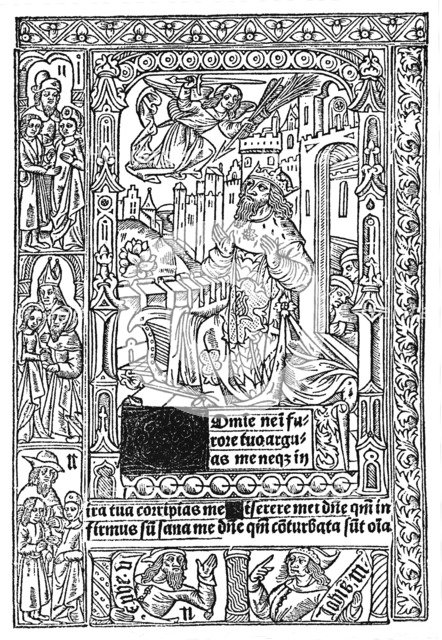 Dmie nei fu-
rore tuo argu-
as me neqz in
ira tua corripias me iserere mei dñe qm̄ in
firmus sū sana me dñe qm̄ cōturbata sūt oīa
tobie. m